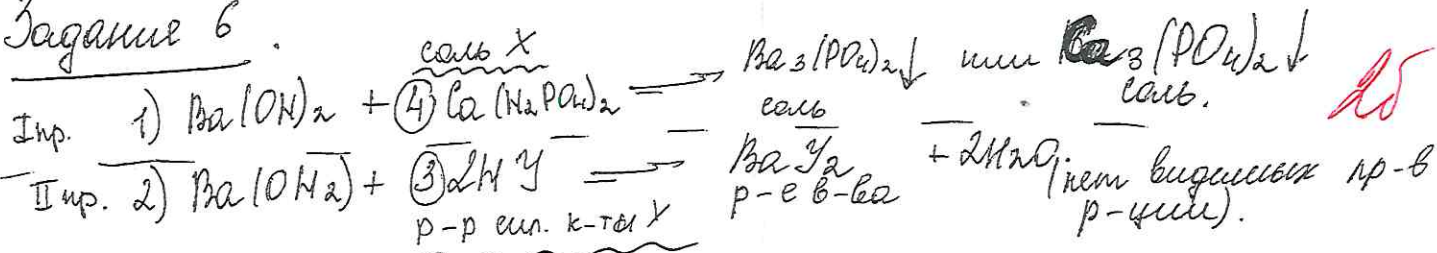 Задание 6.
соль X
I пр. 1) Ba(OH)2 + ④ Ca(H2PO4)2 → Ba3(PO4)2↓ или Ca3(PO4)2↓
соль соль.
2б
II пр. 2) Ba(OH2) + ③ 2HY → BaY2 + 2H2O (нет видимых пр-в
р-р сил. к-ты Y р-е в-ва р-ции).